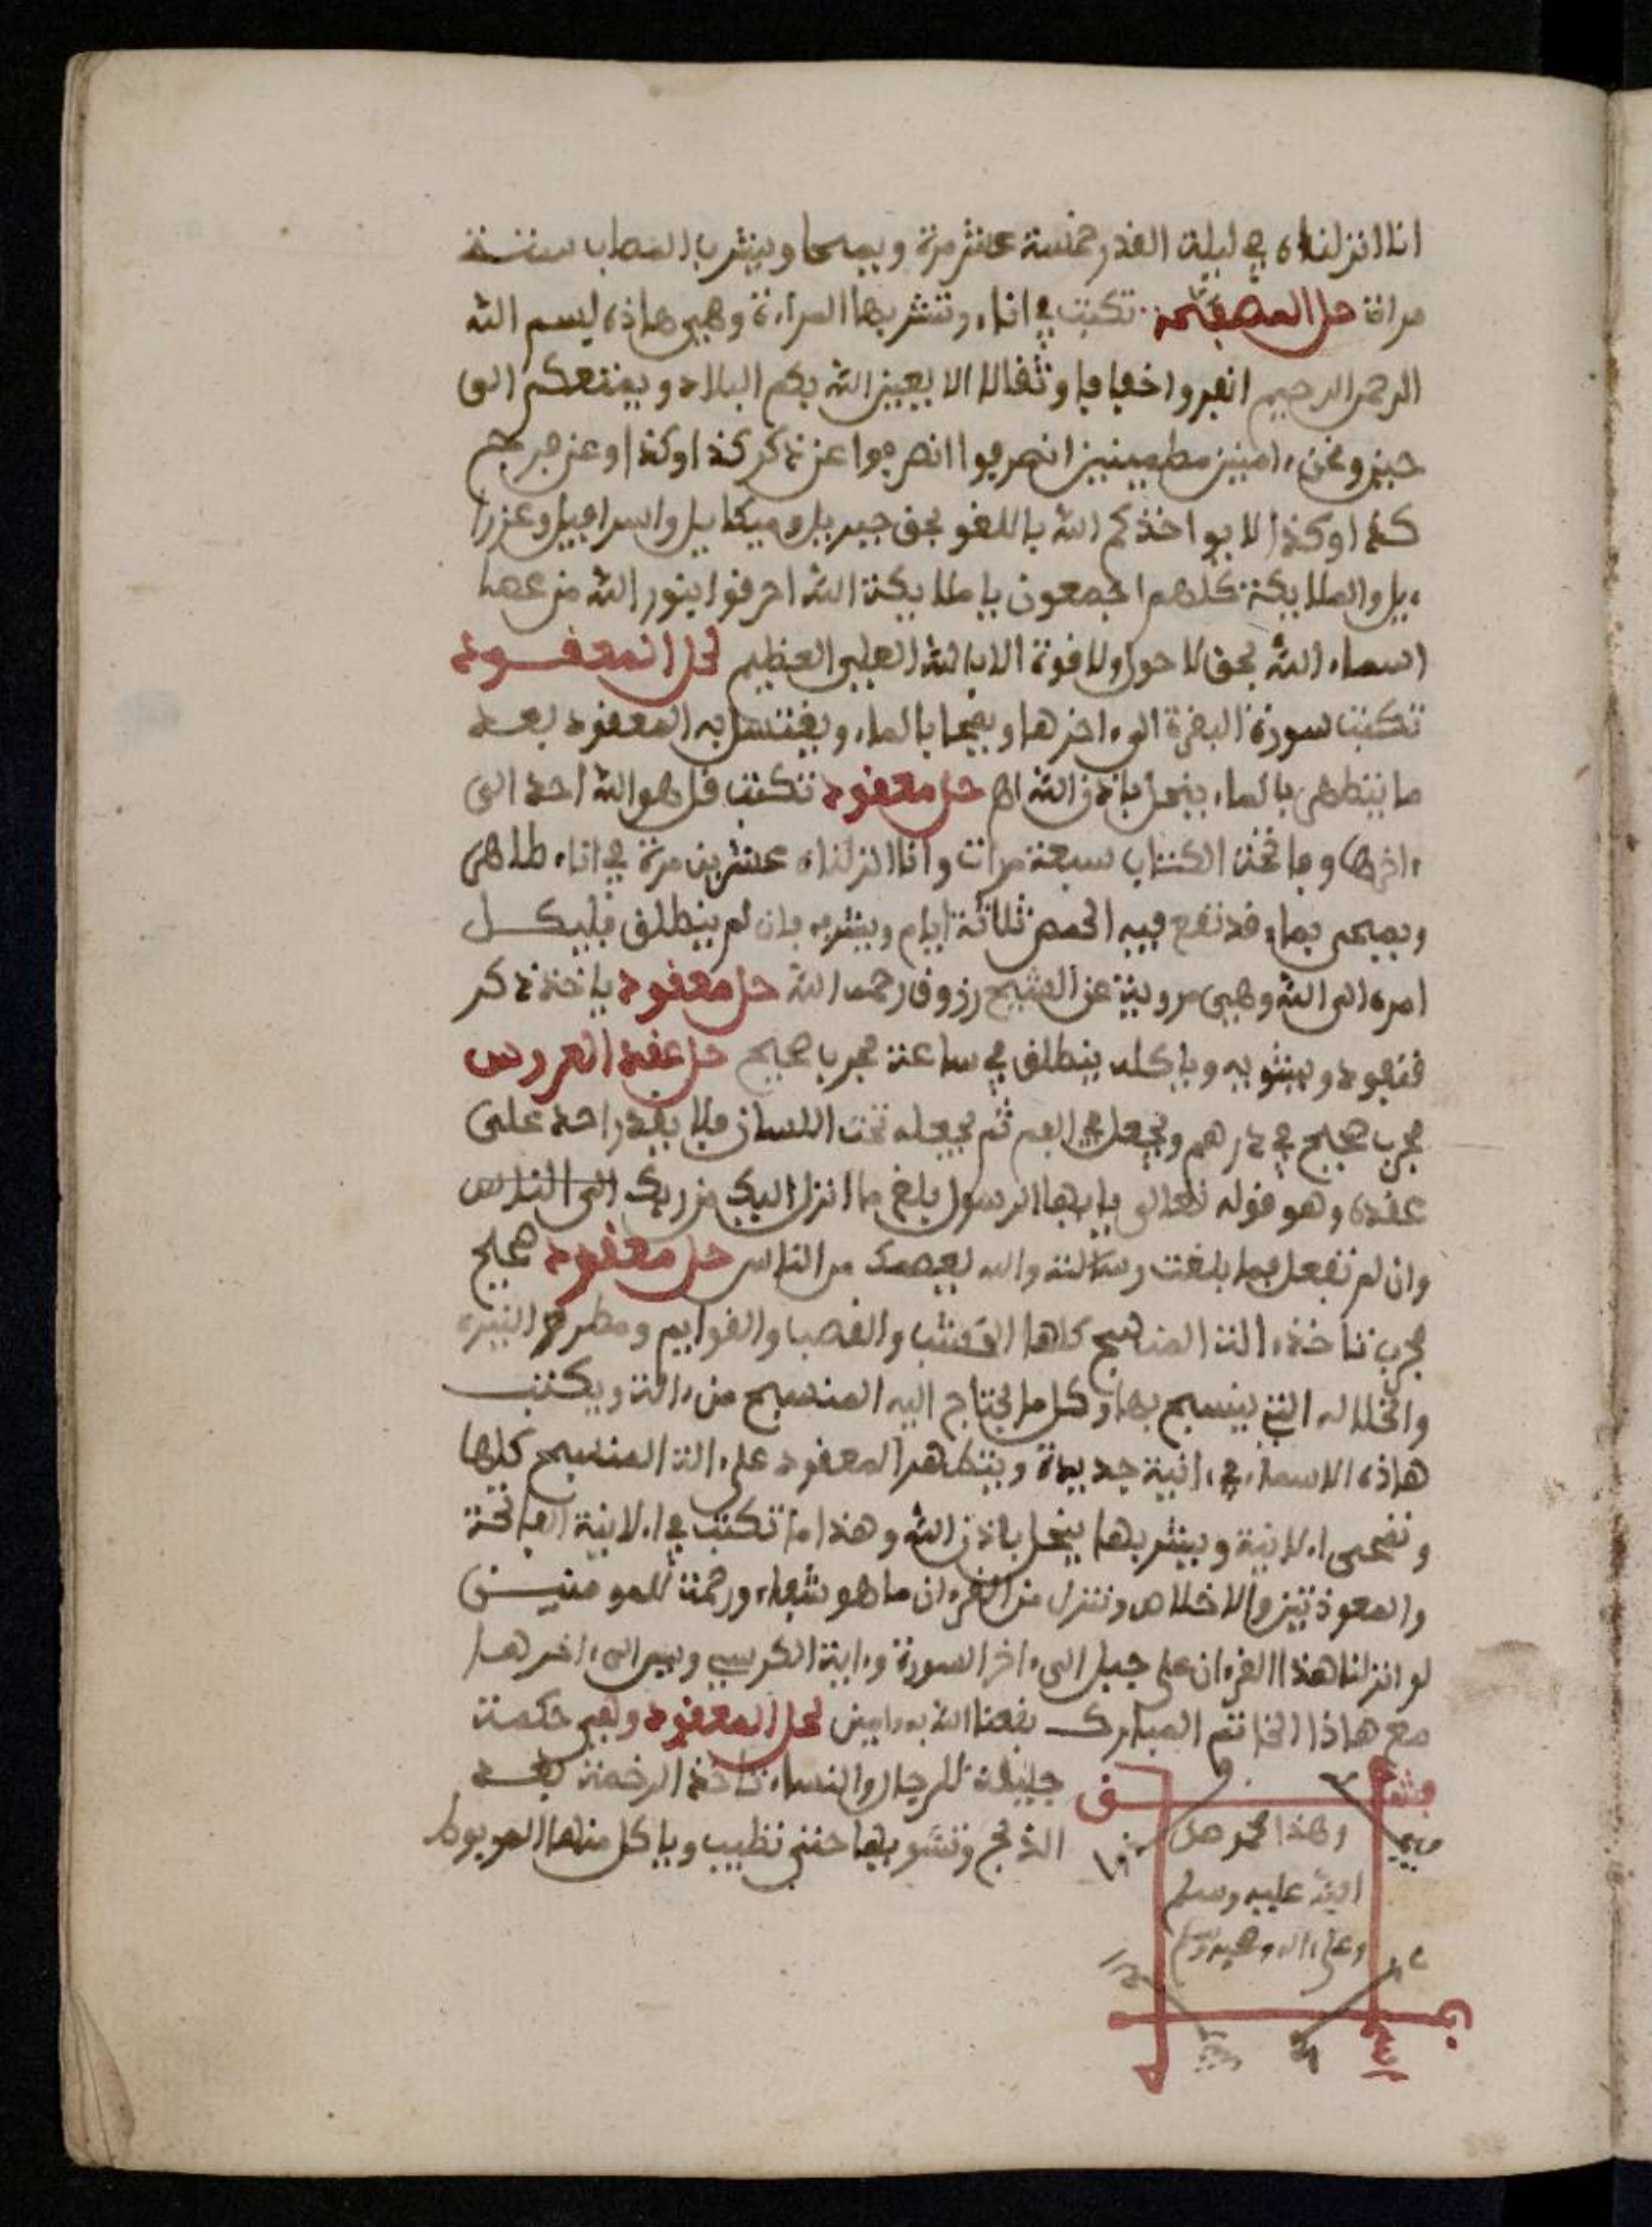 انا انزلناه في ليلة القدر خمسة عشر مرة ويمحا ويشرب المصاب ستة
مرات حل المصفحة تكتب في اناء وتشربها المراة وهي هاذه بسم الله
الرحمن الرحيم انفروا خفافا وثقالا الا يعين الله بكم البلاد ويمتعكم الى
حين ونحن ءامنين مطمينين انصرفوا انصرفوا عن ذكر كذا وكذا وعن فرج
كذا وكذا لا يواخذكم الله باللغو بحق جبريل وميكاييل واسرافيل وعزرا
ءيل والملايكة كلهم اجمعون يا ملايكة الله احرقوا بنور الله من عصا
اسماء الله بحق لا حول ولا قوة الا بالله العلي العظيم لحل المعقود
تكتب سورة البقرة الى ءاخرها ويمحا بالماء ويغتسل به المعقود بعد
ما يتطهر بالماء ينحل باذن الله اهـ حل معقود تكتب قل هو الله احد الى
ءاخرها وفاتحة الكتاب سبعة مرات وانا انزلناه عشرين مرة في اناء طاهر
ويمحى بماء قد نقع فيه الحمص ثلاثة ايام ويشربه فان لم ينطلق فليكل
امره الى الله وهي مروية عن الشيخ رزوق رحمه الله حل معقود ياخذ ذكر
قنفود ويشويه وياكله ينطلق في ساعة مجرب صحيح حل عقد العروس
مجرب صحيح في درهم ويجعل في الفم ثم يجعله تحت اللسان فلا يقدر احد على
عقده وهو قوله تعالى يايها الرسول بلغ ما انزل اليك من ربك الى الناس
وان لم تفعل فما بلغت رسالته والله يعصمك من الناس حل معقود صحيح
مجرب تاخذ ءالت المنسج كلها والقصبا والقوايم ومطرف النيره
والخلاله التي ينسج بها وكل ما يحتاج اليه المنسج من ءالة ويكتب
هاذه الاسماء في ءانية جديدة ويتطهر المعقود على ءالت المنسج كلها
وتمحى الانية ويشربها ينحل باذن الله وهذا ما تكتب في الانية الفاتحة
والمعوذتين والاخلاص وننزل من القرءان ما هو شفاء ورحمة للمومنين
لو انزلنا هذا القرءان على جبل الى ءاخر السورة وءاية الكرسي ويس الى ءاخرها
مع هاذا الخاتم المبارك نفعنا الله به ءامين لحل المعقود وهي حكمة
جليلة للرجال والنساء تاخذ الرخمة بعد
الذبح وتشويها حتى تطيب وياكل منها المربوط
وهذا محمد صل
الله عليه وسلم
وعلى ءاله وصحبه وسلم